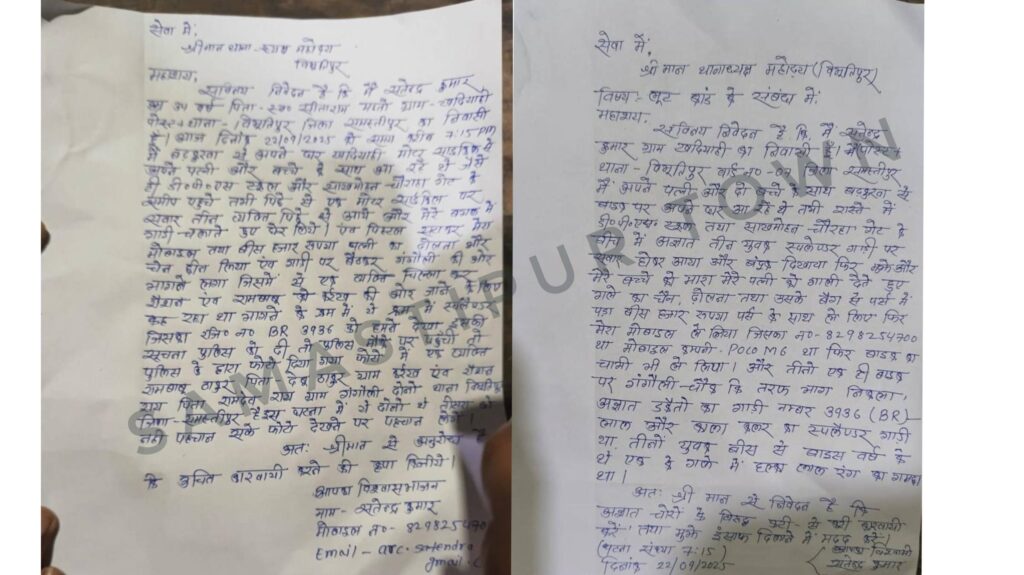 सेवा में,
श्रीमान थाना-ध्यक्ष महोदय
विद्यापतिपुर
महाशय,
सविनय निवेदन है कि मैं सतेन्द्र कुमार
उम्र वर्ष पिता- स्व० सीताराम महतो ग्राम-
पोस्ट+थाना- जिला समस्तीपुर का निवासी
हूँ। आज दिनांक 22/09/2025 को समय करीब 7:15 PM
में से अपने घर मोटर साइकिल से
अपने पत्नी और बच्चे के साथ आ रहे थे जैसे
ही डी०पी०एस स्कूल और साखमोहन चौराहा गेट के
समीप पहुंचे तभी पिछे से एक मोटर साइकिल पर
सवार तीन व्यक्ति पिछे से आये और मेरे बगल में
गाड़ी- चलाते हुए घेर लिये। एवं पिस्टल सटाकर मेरा
मोबाइल तथा बीस हजार रूपया पत्नी का ढोलना और
चेन छीन लिया एंव गाड़ी पर बैठकर गंगौली की ओर
भागने लगा जिसमें से एक व्यक्ति चिल्ला कर
रौशन एंव रामबाबू को की ओर जाने के लिए
कह रहा था भागने के क्रम में
जिसका रजि० न० BR 3936 को हमने देखा इसकी
सूचना पुलिस को दी तो पुलिस मौके पर पहुँची तो
पुलिस के द्वारा फोटो दिया गया फोटो में एक व्यक्ति
रामबाबू ठाकुर पिता ठाकुर ग्राम एंव रौशन
राय पिता रामदेव राय ग्राम गंगौली दोनो थाना
जिला-समस्तीपुर है इस घटना में ये दोनो थे तीसरा को
नही पहचान सके फोटो देखने पर पहचान लेंगे।
अतः श्रीमान से अनुरोध है
कि उचित कारवायी करने की कृपा किजीये।
आपका विश्वासभाजन
नाम - सतेन्द्र कुमार
मोबाइल न०- 8298254700
Email - arc. satendra
gmail.c
सेवा में,
श्रीमान थानाध्यक्ष महोदय
विषय:- लूट कांड के संबंध में।
महाशय,
सविनय निवेदन है कि मैं सतेन्द्र
कुमार ग्राम का निवासी हूँ
थाना- वार्ड न०-07 जिला समस्तीपुर
मैं अपने पत्नी और दो बच्चे के साथ से
बाइक पर अपने घर आ रहे थे तभी रास्ते में
डी०पी०एस० स्कूल तथा साखमोहन-चौराहा गेट के
बीच में अज्ञात तीन युवक स्पलेण्डर गाड़ी पर
सवार होकर आया और बंदुक दिखाया फिर मुझे और
मेरे बच्चे को मारा मेरे पत्नी को गाली देते हुए
गले का चैन, ढोलना तथा उसके बैग से पर्स में
पड़ा बीस हजार रूपया पर्स के साथ ले लिए फिर
मेरा मोबाइल ले लिया जिसका न०- 8298254700
था मोबाइल कम्पनी- POCO M6 था फिर बाइक का
चाभी भी ले लिया। और तीनो एक ही बाइक
पर गंगौली-चौक कि तरफ भाग निकला,
अज्ञात डकैतो का गाड़ी नम्बर 3936 (BR)
लाल और काला कलर का स्पलेण्डर गाड़ी
था तीनों युवक बीस से बाइस वर्ष के
थे एक के गले में हल्का लाल रंग का गमछा
था।
अतः श्री मान से निवेदन है कि
अज्ञात चोरों के विरूद्ध कड़ी- से कड़ी करवायी
करें तथा मुझे इंसाफ दिलाने में मदद करे।
(घटना संख्या 7:15)
दिनांक 22/09/2025
सतेन्द्र कुमार
SAMASTIPUR TOWN